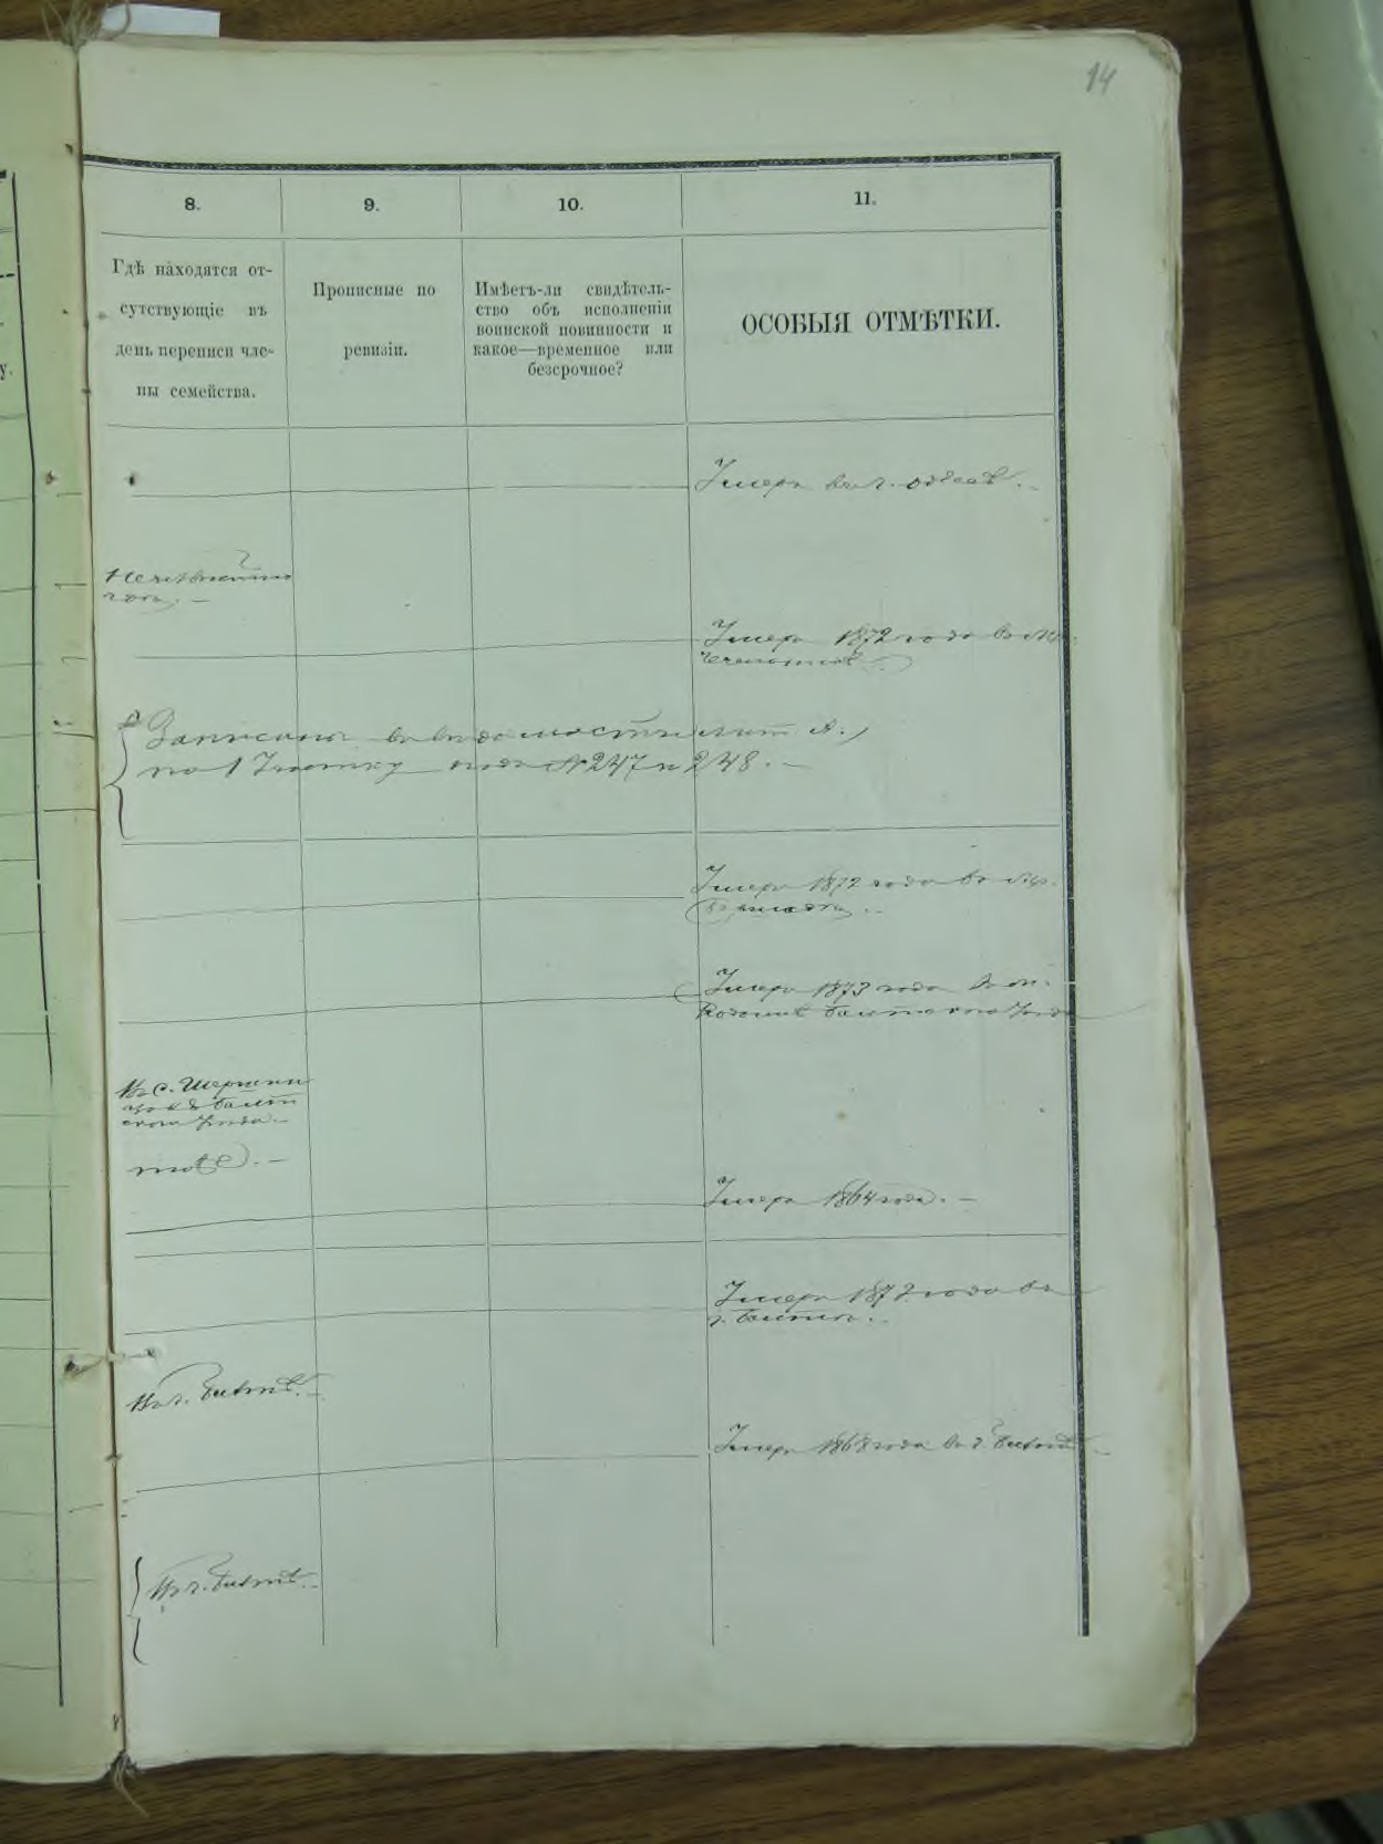 14
8.
9.
10.
11.
Гдѣ находятся от-
сутствующіе въ
день переписи чле-
ны семейства.
Прописные по
ревизіи.
Имѣетъ-ли свидѣтель-
ство объ исполненіи
воинской повинности и
какое—временное или
безсрочное?
ОСОБЫЯ ОТМѢТКИ.
Умеръ въ г. Одессѣ.
Неизвѣстно
гдѣ.
Умеръ 1872 года въ м.
Записаны въ вѣдомости лит. А.,
по 1 Участку подъ № 247 и 248.
Умеръ 1872 года въ м.
Умеръ 1873 года въ м.
Балтскаго Уѣзда
Въ с.
Балт
скаго Уѣзда.
тоже.
Умеръ 1864 года.
Умеръ 1872 года въ
г. Балтѣ.
Въ г. Балтѣ.
Умеръ 1868 года въ г. Балтѣ
Въ г. Балтѣ.